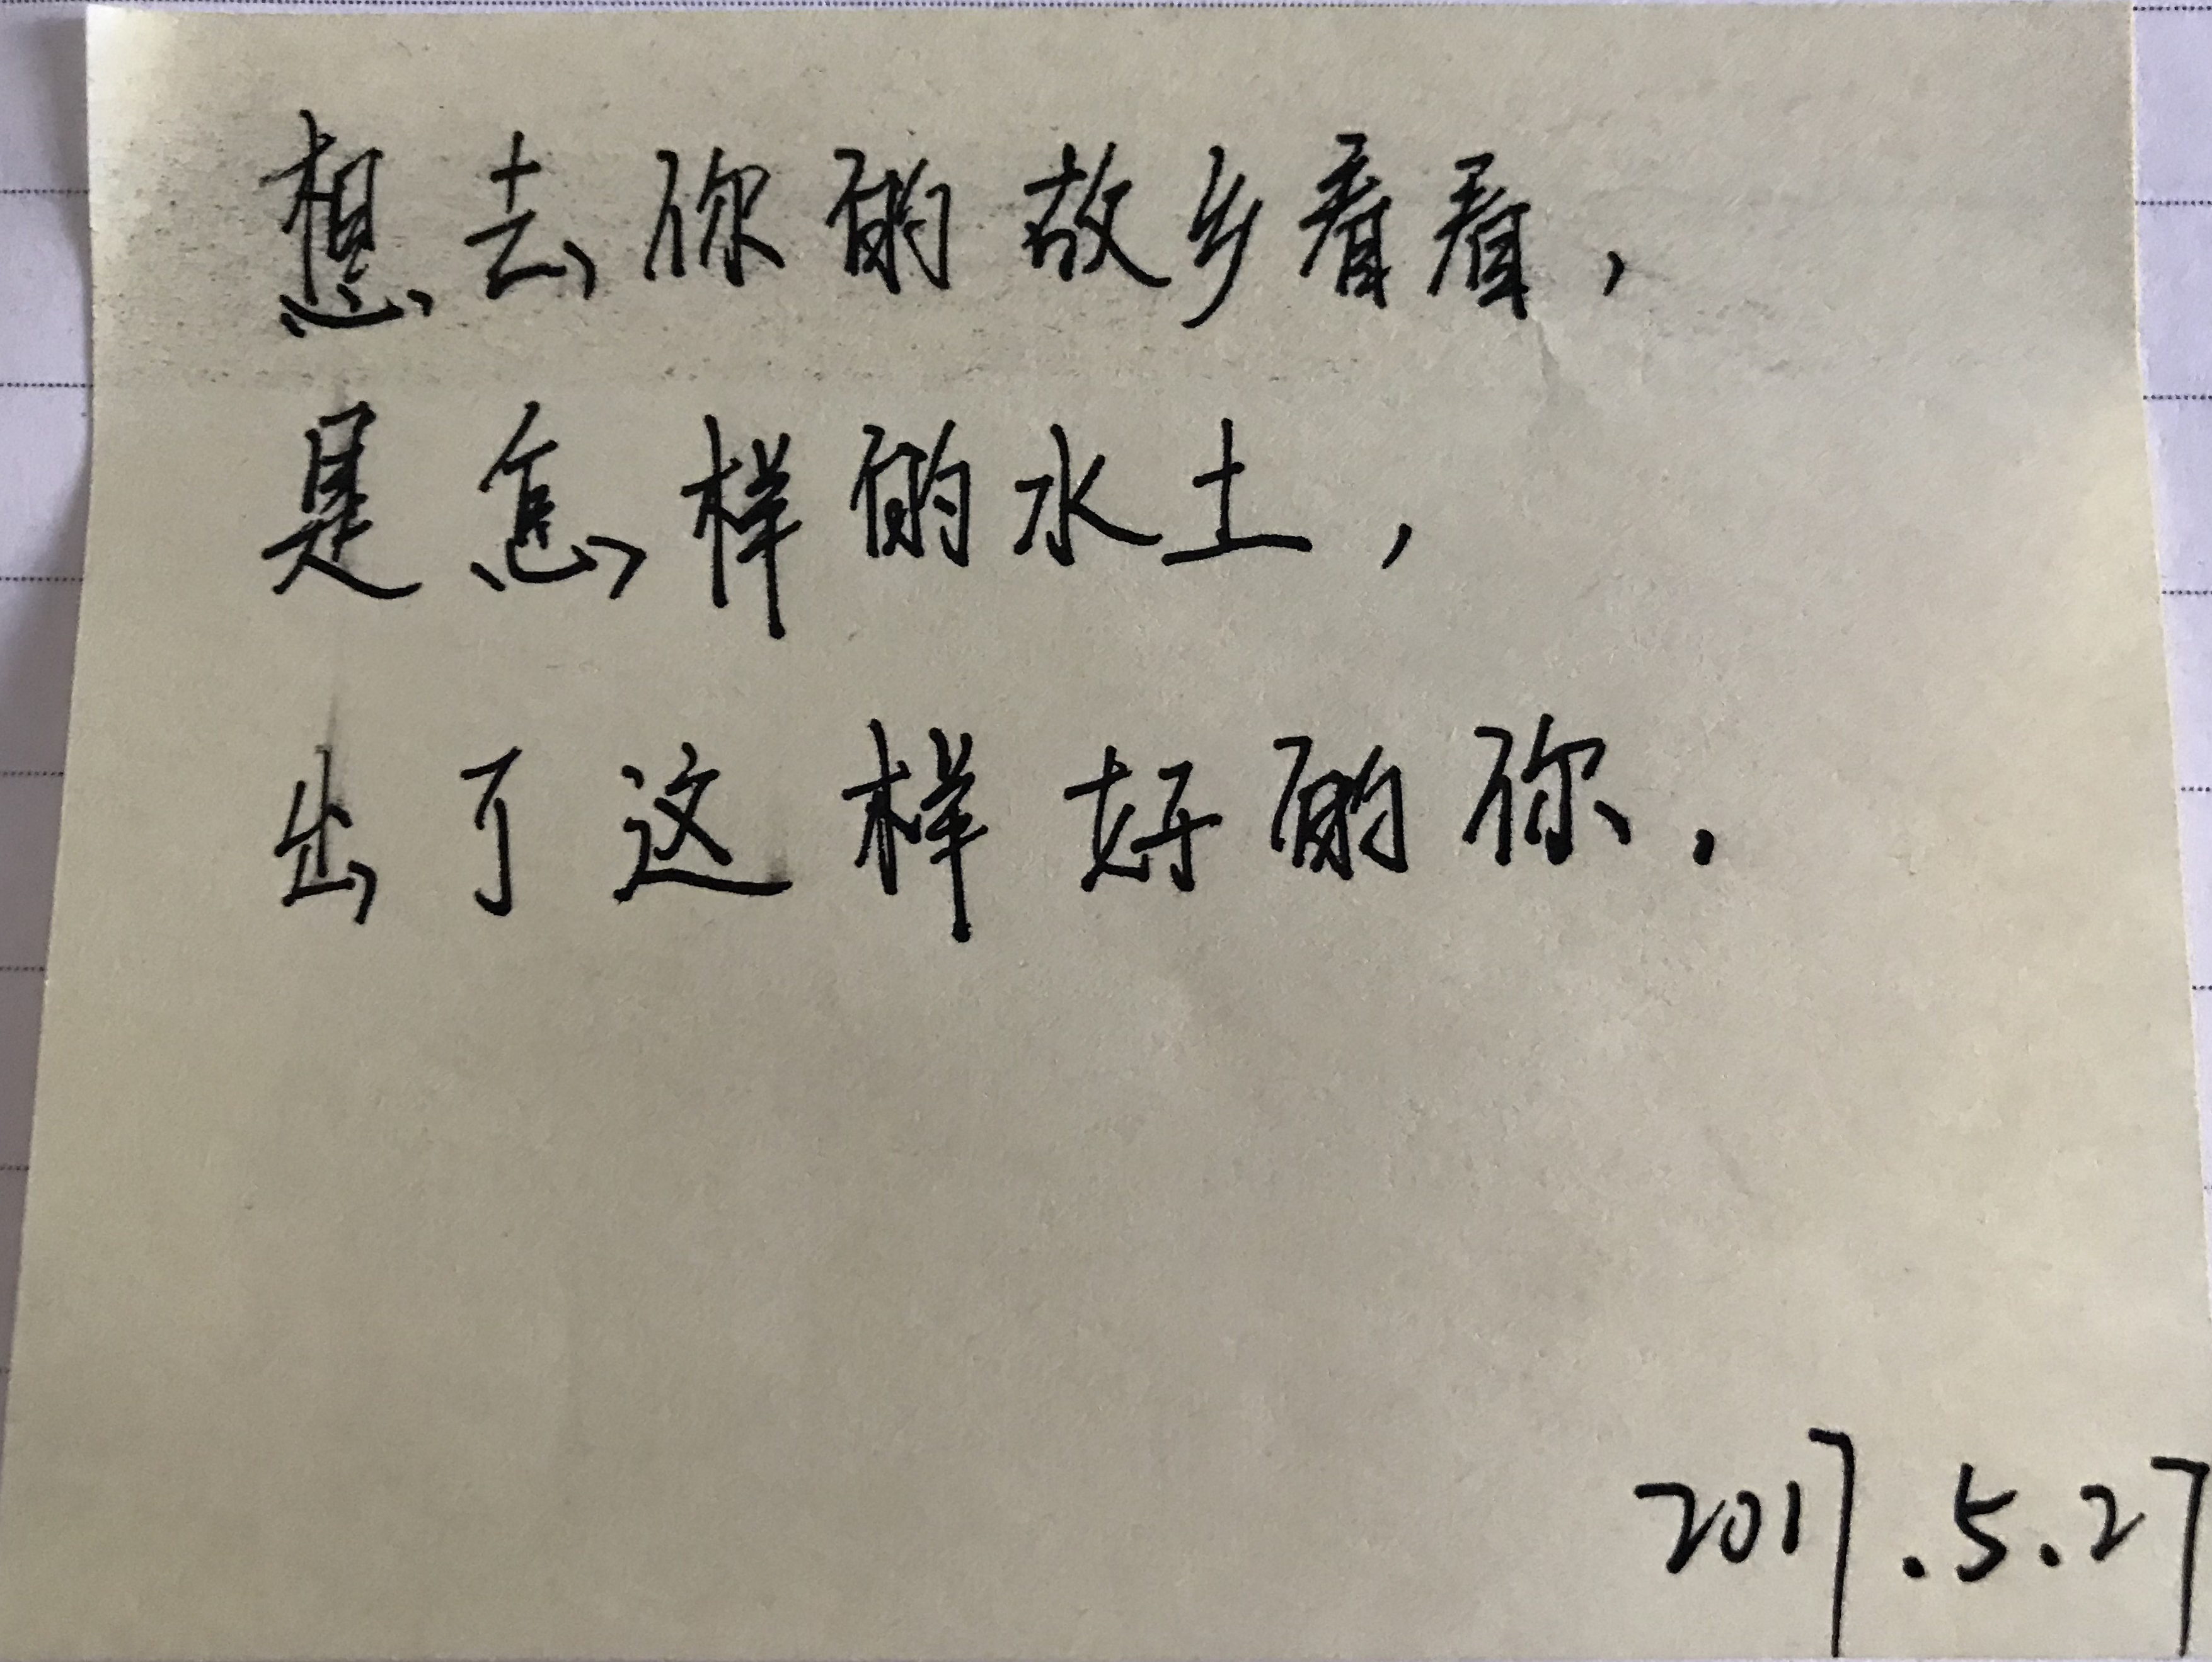 想去你的故乡看看，
是怎样的水土，
出了这样好的你.
2017.5.27